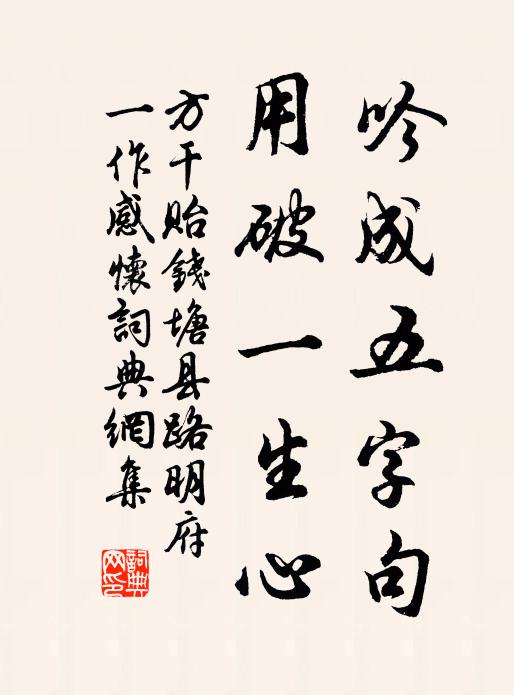 吟成五字句
用破一生心
方干贻錢塘县路明府
一作感懷詞典網集
詞典
网印